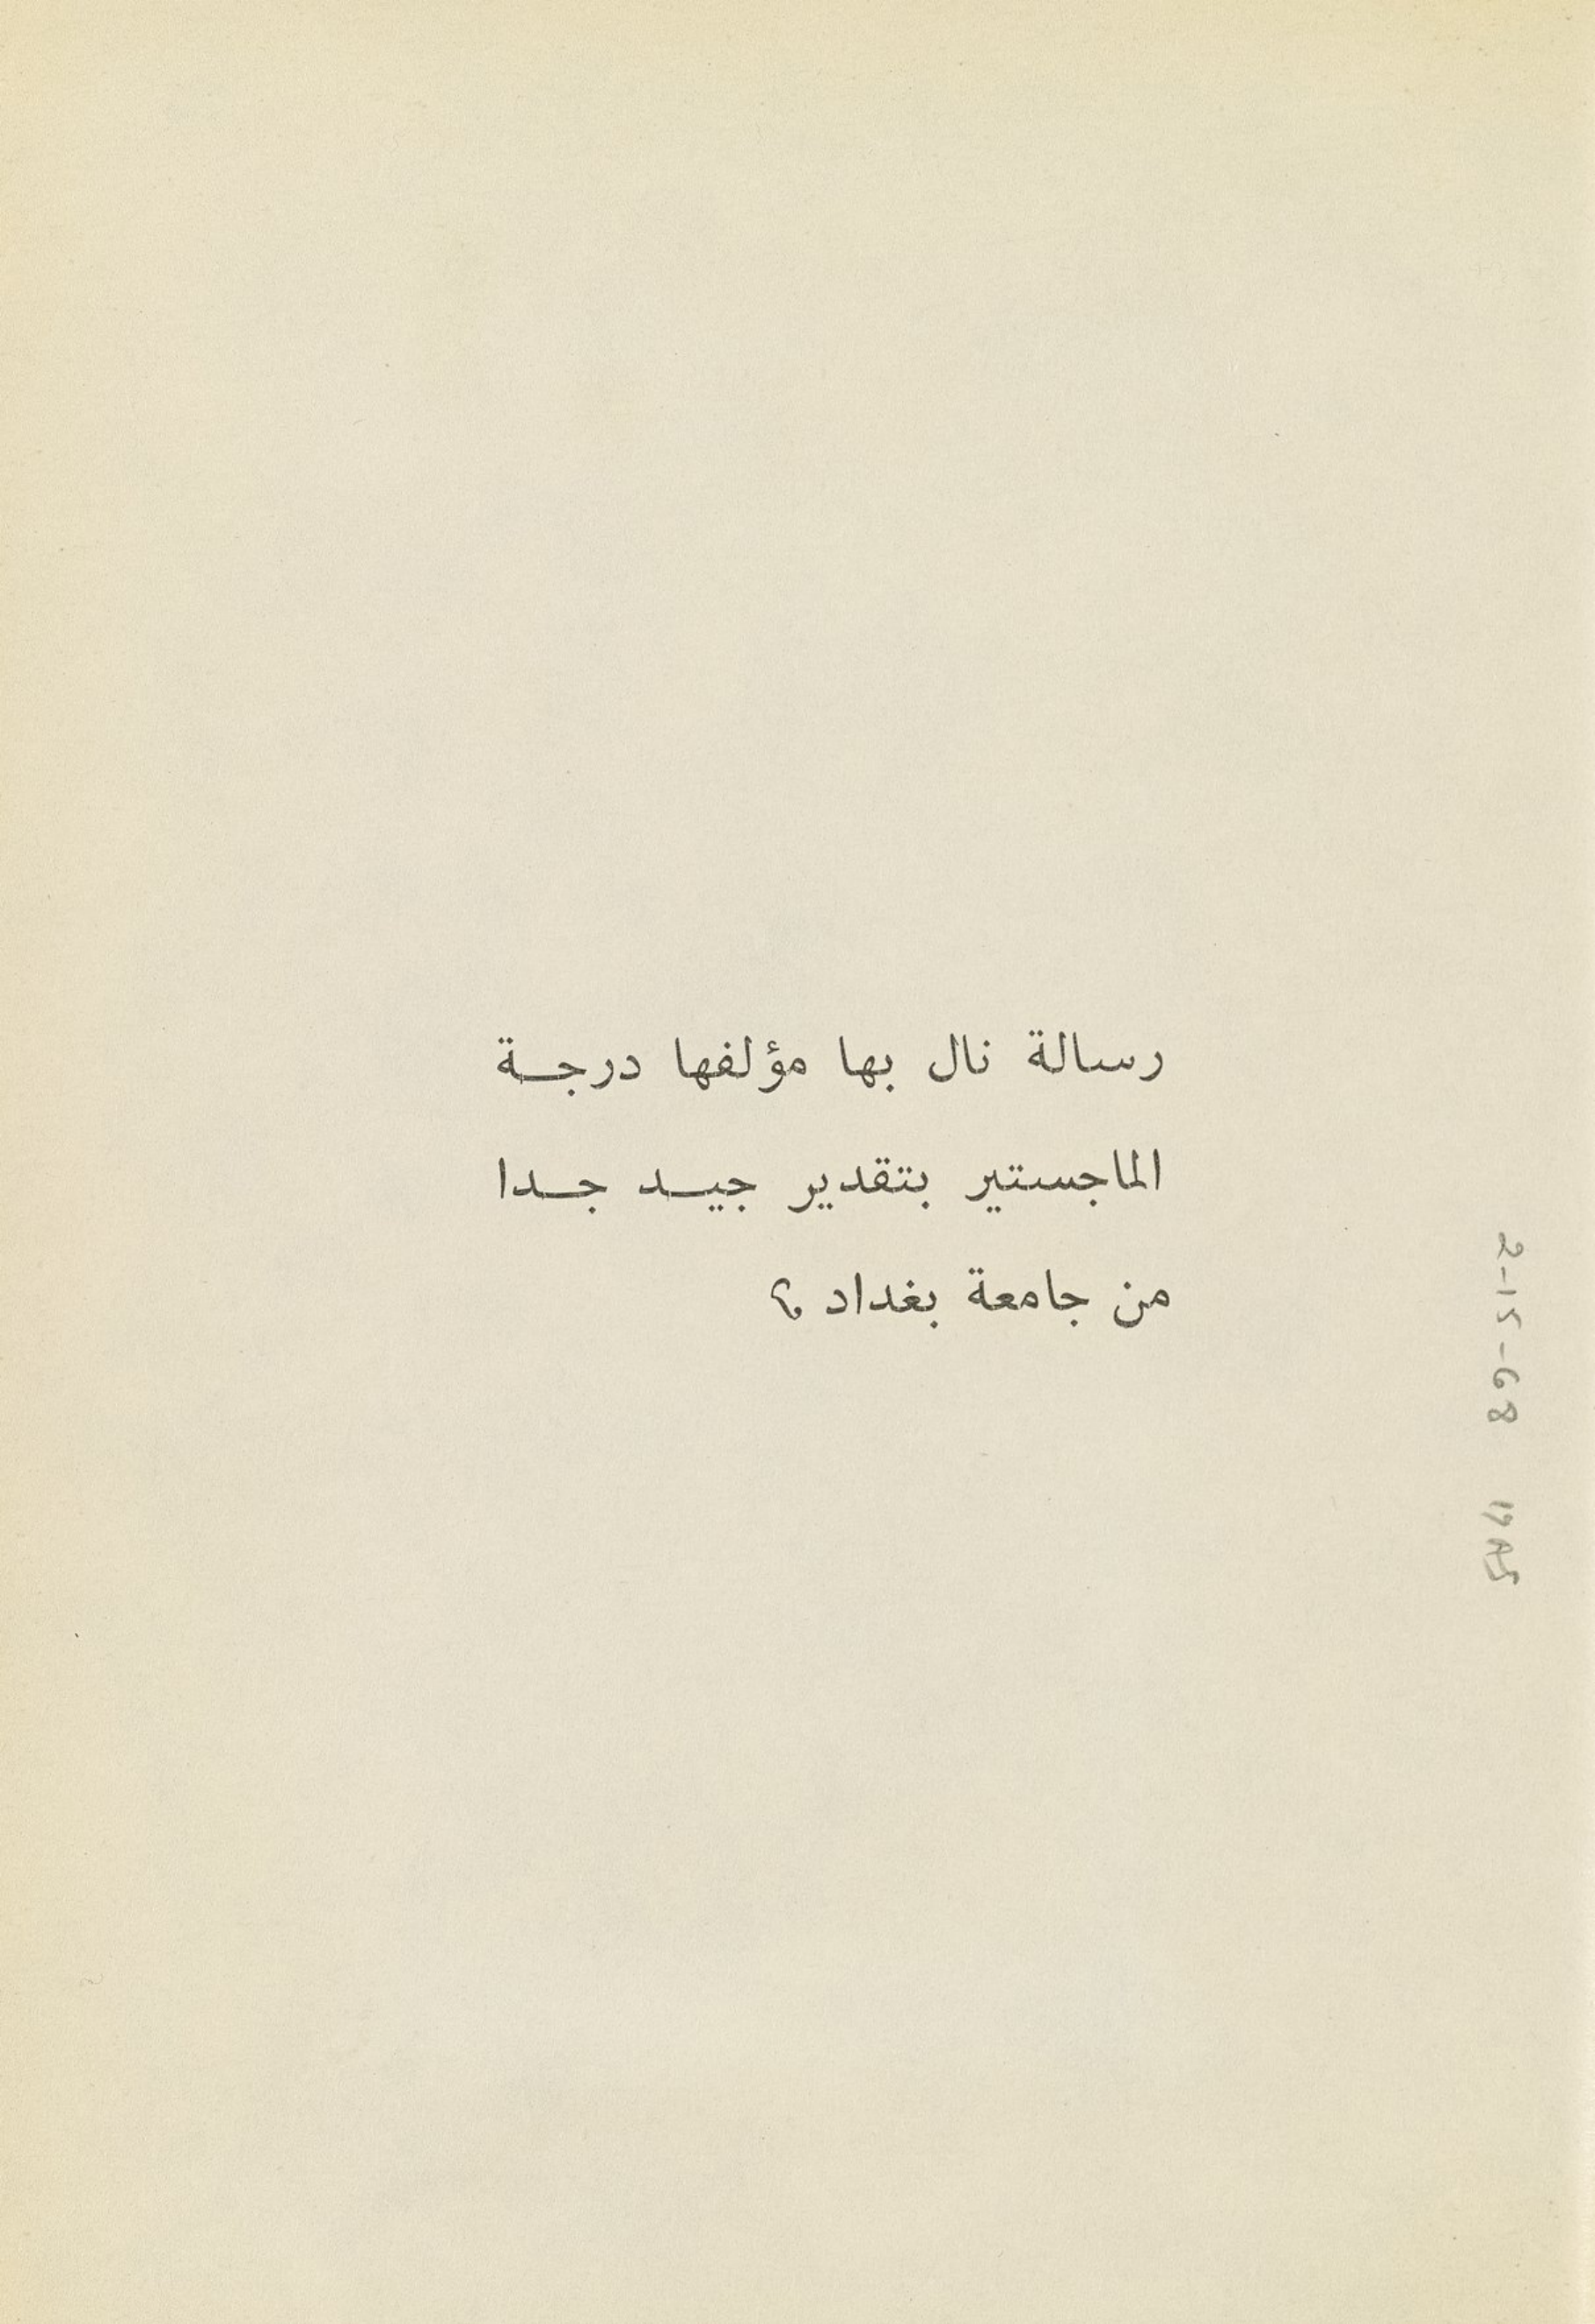 رسالة نال بها مؤلفها درجـــة
الماجستير بتقدير جيـــد جـــدا
من جامعة بغداد
2-15-68